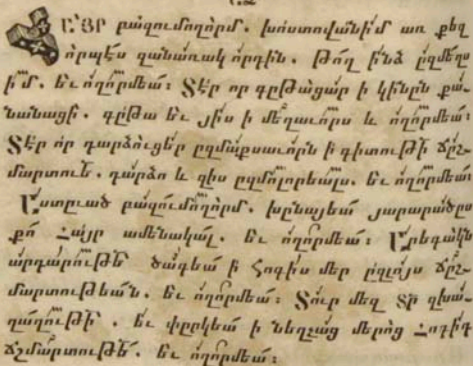 ՀԱՅՐ բազումողորմ. խոստովանիմ առ քեզ
որպէս զանառակ որդին. թող ինձ ըզմեղս
իմ. եւ ողորմեա։ Տէր որ գըթացար ի կինըն քա֊
նանացի. գըթա եւ յիս ի մեղաւորս և ողորմեա։
Տէր որ դարձուցեր ըզմաքսաւորն ի գիտութի ճըշ֊
մարտուե. դարձո և զիս ըզմոլորեալս. եւ ողորմեա
Աստըւած բազումողորմ. խընայեա յարարածըս
քո Հայր ամենակալ. եւ ողորմեա։ Արեգակն
արդարութե ծագեա ի հոգիս մեր ըզլոյս ճըշ֊
մարտութեան. եւ ողորմեա։ Տուր մեզ տր զխա֊
ղաղութի. եւ փըրկեա ի նեղչաց մերոց Հոգիդ
ճշմարտութե. եւ ողորմեա։